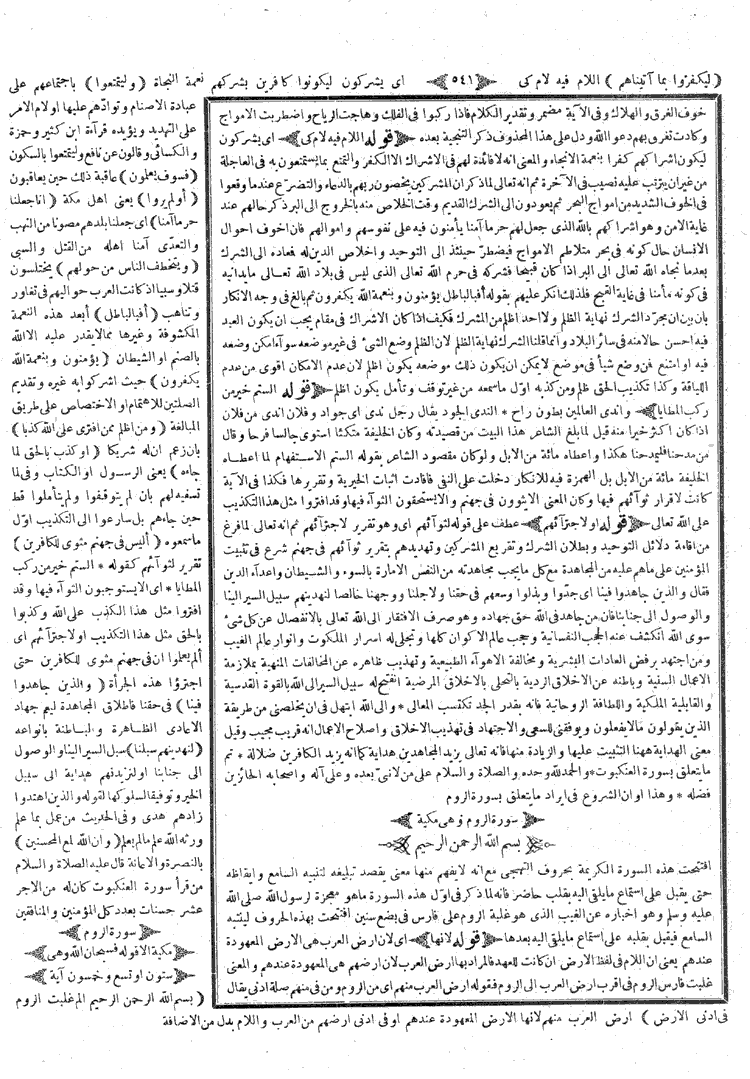 (ليكفروا بما آتيناهم) اللام فيه لام كى ﴿ ٥٤١ ﴾ اى يشركون ليكونوا كافرين بشركهم نعمة النجاة (وليتمتعوا) باجتماعهم على
عبادة الاصنام وتوادّهم عليها اولام الامر
على التهديد ويؤيده قراءة ابن كثير وحمزة
والكسائى وقالون عن نافع وليتمتعوا بالسكون
(فسوف يعلمون) عاقبة ذلك حين يعاقبون
(أولم يروا) يعنى اهل مكة (انا جعلنا
حرما آمنا) اى جعلنا بلدهم مصونا من النهب
والتعدّى آمنا اهله من القتل والسبى
(ويتخطف الناس من حولهم) يختلسون
قتلا وسبيا اذ كانت العرب حواليهم فى تغاور
وتناهب (أفبالباطل) أبعد هذه النعمة
المكشوفة وغيرها مما لا يقدر عليه الا الله
بالصنم او الشيطان (يؤمنون وبنعمة الله
يكفرون) حيث اشركوا به غيره وتقديم
الصلتين للاهتمام او الاختصاص على طريق
المبالغة (ومن اظلم ممن افترى على الله كذبا)
بان زعم ان له شريكا (او كذب بالحق لما
جاءه) يعنى الرسول او الكتاب وفى لما
تسفيه لهم بان لم يتوقفوا ولم يتأملوا قط
حين جاءهم بل سارعوا الى التكذيب اوّل
ما سمعوه (أليس فى جهنم مثوى للكافرين)
تقرير لثوائهم كقوله * الستم خير من ركب
المطايا * اى الا يستوجبون الثواء فيها وقد
افتروا مثل هذا الكذب على الله وكذبوا
بالحق مثل هذا التكذيب او لاجترائهم اى
ألم يعلموا ان فى جهنم مثوى للكافرين حتى
اجترؤا هذه الجرأة (والذين جاهدوا
فينا) فى حقنا فاطلاق المجاهدة ليعم جهاد
الاعادى الظاهرة والباطنة بانواعه
(لنهدينهم سبلنا) سبل السير الينا والوصول
الى جنابنا او لنزيدنهم هداية الى سبيل
الخير وتوفيقا لسلوكها لقوله والذين اهتدوا
زادهم هدى وفى الحديث من عمل بما علم
ورثه الله علم ما لم يعلم (وان الله لمع المحسنين)
بالنصرة والاعانة قال عليه الصلاة والسلام
من قرأ سورة العنكبوت كان له من الاجر
عشر حسنات بعدد كل المؤمنين والمنافقين
﴿ سورة الروم ﴾
﴿ مكية الا قوله فسبحان الله وهى ﴾
﴿ ستون او تسع وخمسون آية ﴾
(بسم الله الرحمن الرحيم الم غلبت الروم
خوف الغرق والهلاك وفى الآية مضمر وتقدير الكلام فاذا ركبوا فى الفلك وهاجت الرياح واضطربت الامواج
وكادت تغرق بهم دعوا الله ودل على هذا المحذوف ذكر التنجية بعده ﴿ قوله اللام فيه لام كى ﴾ اى يشركون
ليكون اشراكهم كفرا بنعمة الانجاء والمعنى انه لا فائدة لهم فى الاشراك الا الكفر والتمتع بما يستمتعون به فى العاجلة
من غير ان يترتب عليه نصيب فى الآخرة ثم انه تعالى لما ذكر ان المشركين يخصون ربهم بالدعاء والتضرع عندما وقعوا
فى الخوف الشديد من امواج البحر ثم يعودون الى الشرك القديم وقت الخلاص منه بالخروج الى البر ذكر حالهم عند
غاية الامن وهو اشراكهم بالله الذى جعل لهم حرما آمنا يأمنون فيه على نفوسهم واموالهم فان اخوف احوال
الانسان حال كونه فى بحر متلاطم الامواج فيضطر حينئذ الى التوحيد واخلاص الدين له فعاده الى الشرك
بعدما نجاه الله تعالى الى البر اذا كان قبيحا فشركه فى حرم الله تعالى الذى ليس فى بلاد الله تعالى ما يدانيه
فى كونه مأمنا فى غاية القبح فلذلك انكر عليهم بقوله أفبالباطل يؤمنون وبنعمة الله يكفرون ثم بالغ فى وجه الانكار
بان بين ان مجرّد الشرك نهاية الظلم ولا احد اظلم من المشرك فكيف اذا كان الاشراك فى مقام يجب ان يكون العبد
فيه احسن حالا منه فى سائر البلاد وانما قلنا الشرك نهاية الظلم لان الظلم وضع الشئ فى غير موضعه سوآء امكن وضعه
فيه او امتنع فمن وضع شيأ فى موضع لا يمكن ان يكون ذلك موضعه يكون اظلم لان عدم الامكان اقوى من عدم
اللياقة وكذا تكذيب الحق ظلم ومن كذبه اوّل ما سمعه من غير توقف وتأمل يكون اظلم ﴿ قوله الستم خير من
ركب المطايا ﴾ واندى العالمين بطون راح * الندى الجود يقال رجل ندى اى جواد وفلان اندى من فلان
اذا كان اكثر خيرا منه قيل لما بلغ الشاعر هذا البيت من قصيدته وكان الخليفة متكئا استوى جالسا فرحا وقال
من مدحنا فليمدحنا هكذا واعطاه مائة من الابل ولو كان مقصود الشاعر بقوله الستم الاستفهام لما اعطاه
الخليفة مائة من الابل بل الهمزة فيه للانكار دخلت على النفى فافادت اثبات الخيرية وتقريرها فكذا فى الآية
كانت لاقرار ثوآئهم فيها وكان المعنى الا يثوون فى جهنم والا يستحقون الثوآء فيها وقد افتروا مثل هذا التكذيب
على الله تعالى ﴿ قوله او لاجترآئهم ﴾ عطف على قوله لثوآئهم اى وهو تقرير لاجترآئهم ثم انه تعالى لما فرغ
من اقامة دلائل التوحيد وبطلان الشرك وتقريع المشركين وتهديدهم بتقرير ثوآئهم فى جهنم شرع فى تثبيت
المؤمنين على ما هم عليه من المجاهدة مع كل ما يجب مجاهدته من النفس الامارة بالسوء والشيطان واعدآء الدين
فقال والذين جاهدوا فينا اى جدّوا وبذلوا وسعهم فى حقنا ولاجلنا ووجهنا خالصا لنهدينهم سبل السير الينا
والوصول الى جنابنا فان من جاهد فى الله حق جهاده وهو صرف الافتقار الى الله تعالى بالانفصال عن كل شئ
سوى الله انكشف عنه الحجب النفسانية وحجب عالم الاكوان كلها وتجلى له اسرار الملكوت وانوار عالم الغيب
ومن اجتهد برفض العادات البشرية ومخالفة الاهوآء الطبيعية وتهذيب ظاهره عن المخالفات المنهية بملازمة
الاعمال السنية وباطنه عن الاخلاق الردية بالتحلى بالاخلاق المرضية انفتح له سبيل السير الى الله بالقوة القدسية
والقابلية الملكية واللطافة الروحانية فانه بقدر الجد تكتسب المعالى * والى الله ابتهل فى ان يخلصنى من طريقة
الذين يقولون ما لا يفعلون ويوفقنى للسعى والاجتهاد فى تهذيب الاخلاق واصلاح الاعمال انه قريب مجيب وقيل
معنى الهداية ههنا التثبيت عليها والزيادة منها فانه تعالى يزيد المجاهدين هداية كما انه يزيد الكافرين ضلالة * تم
ما يتعلق بسورة العنكبوت * والحمد لله وحده والصلاة والسلام على من لا نبىّ بعده وعلى آله واصحابه الحائزين
فضله * وهذا اوان الشروع فى ايراد ما يتعلق بسورة الروم
﴿ سورة الروم وهى مكية ﴾
﴿ بسم الله الرحمن الرحيم ﴾
افتتحت هذه السورة الكريمة بحروف التهجى مع انه لا يفهم منها معنى يقصد تبليغه لتنبيه السامع وايقاظه
حتى يقبل على استماع ما يلقى اليه بقلب حاضر فانه لما ذكر فى اوّل هذه السورة ما هو معجزة لرسول الله صلى الله
عليه وسلم وهو اخباره عن الغيب الذى هو غلبة الروم على فارس فى بضع سنين افتتحت بهذه الحروف لينتبه
السامع فيقبل بقلبه على استماع ما يلقى اليه بعدها ﴿ قوله لانها ﴾ اى لان ارض العرب هى الارض المعهودة
عندهم يعنى ان اللام فى لفظ الارض ان كانت للعهد فالمراد بها ارض العرب لان ارضهم هى المعهودة عندهم والمعنى
غلبت فارس الروم فى اقرب ارض العرب الى الروم فقوله ارض العرب منهم اى من الروم ومن فى منهم صلة ادنى يقال
فى ادنى الارض) ارض العرب منهم لانها الارض المعهودة عندهم او فى ادنى ارضهم من العرب واللام بدل من الاضافة